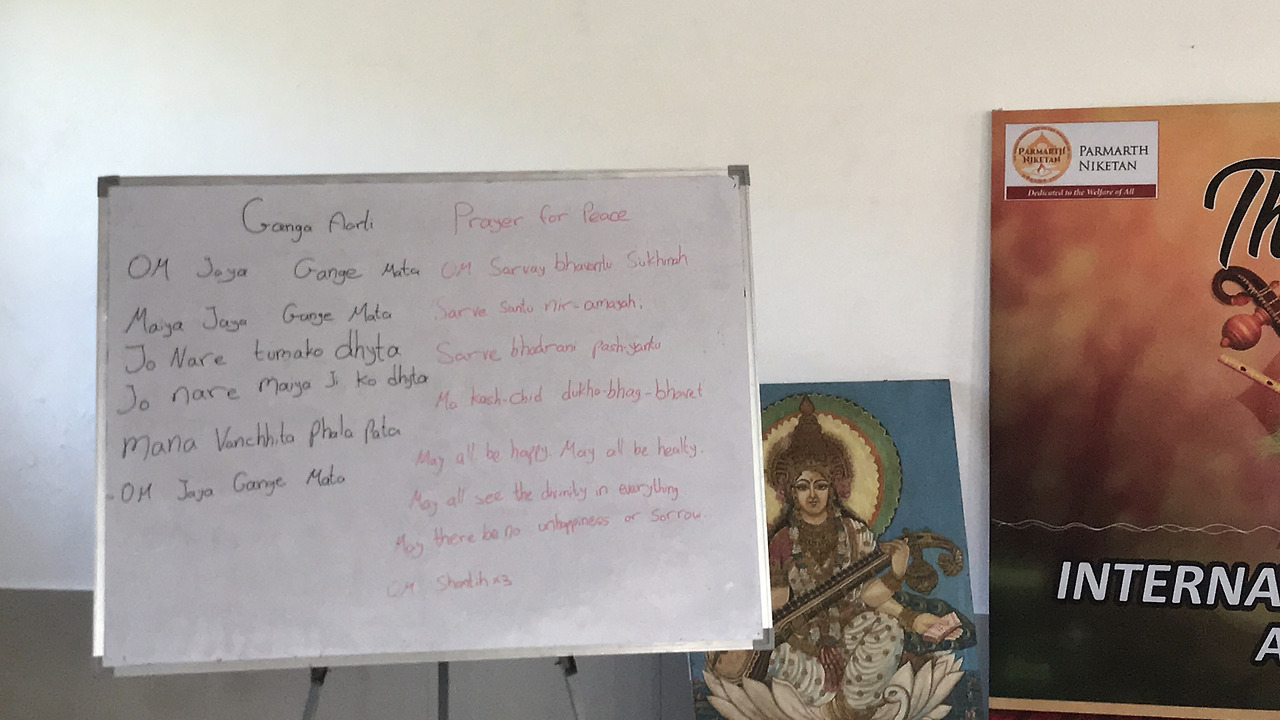 Ganga Aarti
OM Jaya Gange Mata
Maiya Jaya Gange Mata
Jo Nare tumako dhyta
Jo nare Maiya Ji ko dhyta
Mana Vanchhita Phala Pata
OM Jaya Gange Mata
Prayer for Peace
OM Sarvay bhavantu Sukhinah
Sarve Santu nir-amayah.
Sarve bhadrani pashyantu
Ma kash-chid dukha-bhag-bhavet
May all be happy. May all be healty.
May all see the divinity in everything
May there be no unhappiness or Sorrow.
OM Shantih x3
PARMARTH NIKETAN
PARMARTH
NIKETAN
Dedicated to the Welfare of All
Th
INTERNA
A